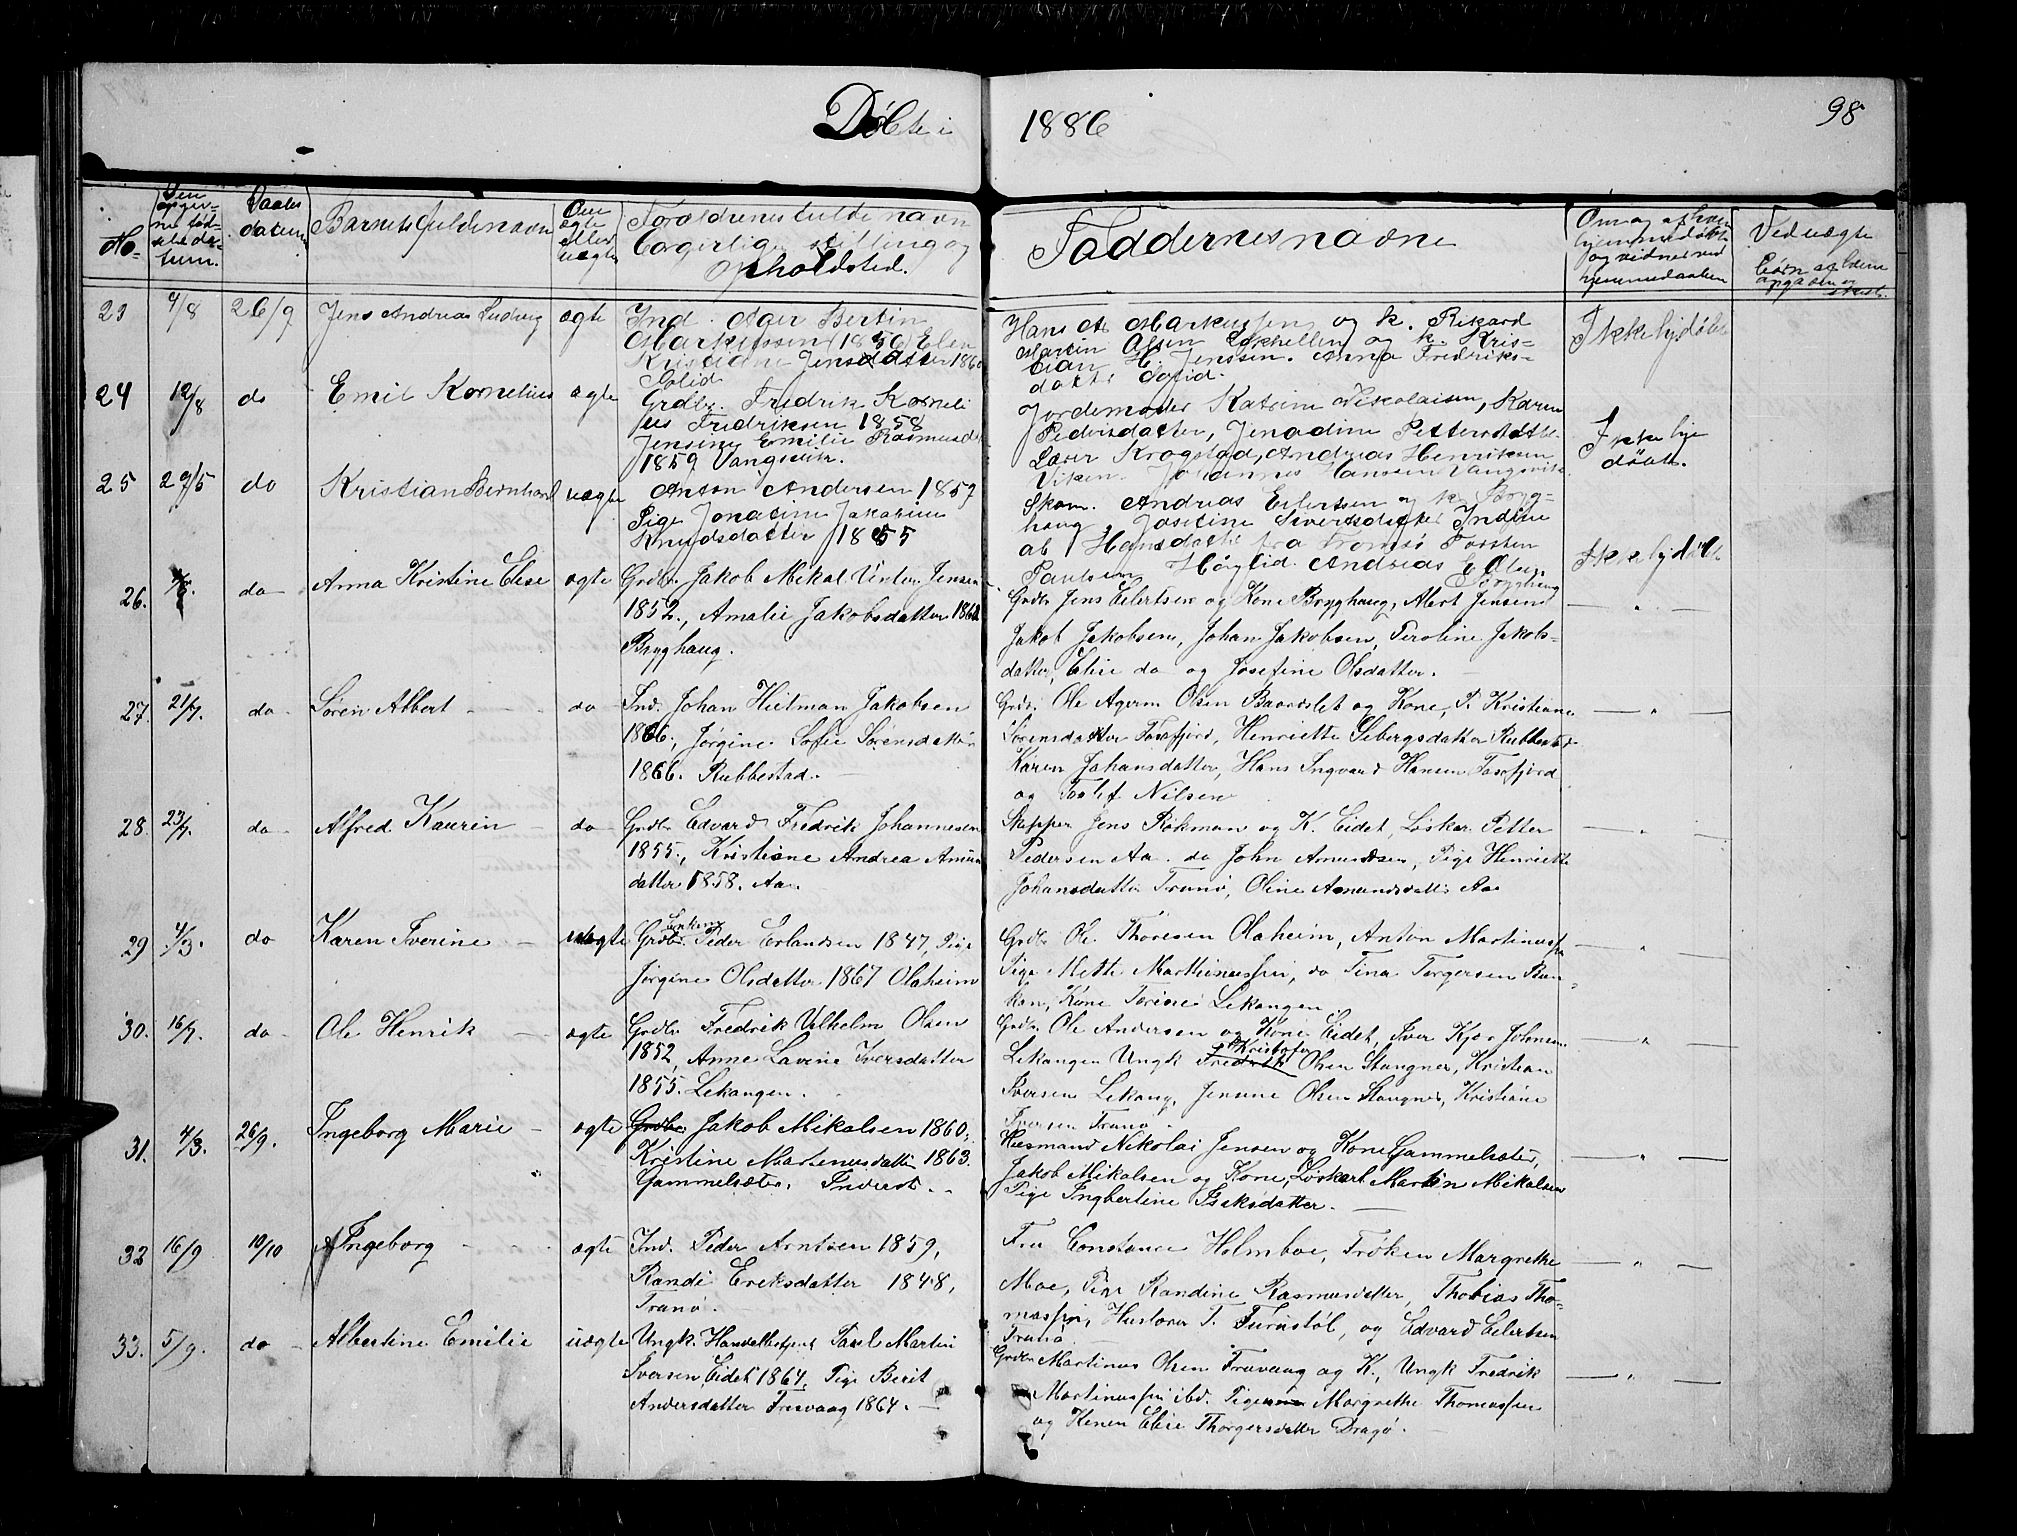 Døbte i 1886
98
No.
Den opgiv-
ne fød-
selsda-
tum.
Daabs
datum
Barnets fulde navn
Om
ægte
eller
uægte
Forældrenes fulde navn
borgerlige stilling og
opholdsted.
Faddernes navne
Om og af hvem
hjemmedøbt
og vidner ved
hjemmedaaben
Ved uægte
børn
23 4/8 26/9 Jens Andreas Ludvig ægte
Ind. Ager Bertin
Markussen (1856) Elen
Kristiane Jensdatter 1860
Solid
Hans A. Markussen og k. Rikard
Martin Olsen og k. Kris-
tian H. Jenssen. Anna Fredriks-
datter Solid.
Ikke hjdøbt
24 12/8 do Emil Kornelius ægte
Grdbr. Fredrik Korneli
us Fredriksen 1858
Jensine Emilie Rasmusd
1859 Vangsvik.
Jordemoder Katrine Nikolaisen, Karen
Pedersdatter, Jenadine Pettersdatte
Lærer Krogstad, Andreas Henriksen
Viken. Johannes Hanssen Vangsvik
Ikke hje
døbt.
25 29/5 do Kristian Bernhard uægte
Anton Andersen 1857
Pige Jonatine Jakobine
Knudsdatter 1855
Skom. Andreas Eilertsen og k. Bryg-
haug, Josefine Sivertsdatter Indine
Hansdatter fra Tromsø Torsten
Paulsen Høglid. Andreas E Olsen
Bryghaug
Ikke hjdøbt
26. do Anna Kristine Elise ægte
Grdbr. Jakob Mikal Jensen
1852., Amalie Jakobsdatter 1860
Bryghaug.
Grdbr Jens Eilertsen og Kone Bryghaug, Albert Jensen
Jakob Jakobsen, Johan Jakobsen, Peroline Jakobs-
datter, Elise do og Josefine Olsdatter.
— " —
27. 21/7. do Søren Albert do
Ind. Johan Hietman Jakobsen
1866., Jørgine Sofie Sørensdatter
1866. Rubbestad.
Grdbr. Ole Agerm Olsen Baardslet og Kone, P. Kristiane
Sørensdatter Tarfjord, Henriette Sebergsdatter Rubbestad
Karen Johansdatter, Hans Ingvard Hansen Tarfjord
og Tollef Nilsen
— " —
28. 23/7. do Alfred Kaurin do
Grdbr Edvard Fredrik Johannesen
1855., Kristiane Andrea Amun
datter 1858. Aa.
Skipper Jens Røkman og K. Eidet, Løskar Petter
Pedersen Aa. do John Amundsen, Pige Henriette
Johansdatter Tranø, Oline Amundsdatter Aa
— " —
29 4/3. do Karen Iverine uægte
Enkem
Grdbr. Peder Erlandsen 1847, Pige
Jørgine Olsdatter 1867 Olaheim
Grdbr Ole Thoresen Olaheim, Anton Martinussen
Pige Mette Martheinussen, do Tina Torgersen Bun-
kan, Kone Torine Lekangen.
— " —
30. 16/7. do Ole Henrik ægte
Grdbr Fredrik Vilhelm Olsen
1852, Anne Lavine Iversdatter
1855. Lekangen.
Grdbr. Ole Andersen og Kone Eidet, Iver Kjo. Johnsen
Lekangen Ungk Fredrik Kristofer Olsen Stangnes, Kristian
Iversen Lekang, Jensine Olsen Stangnes, Kristiane
Iversen Tranø.
— " —
31. 4/3. 26/9. Ingeborg Marie ægte
Grdbr. Jakob Mikalsen 1860,
Kristine Martinusdatter 1863.
Gammelsæter. Inderst.
Husmand Nikolai Jensen og Kone Gammelsæter,
Jakob Mikalsen og Kone, Løskarl Martin Mikalsen
Pige Ingbertine Isaksdatter.
— " —
32 16/9 10/10 Ingeborg ægte
Ind. Peder Arntsen 1859,
Randi Eriksdatter 1848,
Tranø.
Fru Constance Holmboe, Frøken Margrethe
Moe, Pige Randine Rasmusdatter, Thobias Tho-
massen, Huslærer T. Turnstøl, og Edvard Eilertsen
Tranø
— " —
33. 5/9. do Albertine Emilie uægte
Ungk. Handelsbetjent Paul Martin
Iversen Eidet 1864, Pige Berit
Andersdatter Frovaag 1864.
Grdbr Martinus Olsen Frovaag og K., Ungk Fredrik
Martinussen ibd. Pigerne Margrethe Thomassen
og Elise Thorgersdatter Dragø.
— " —